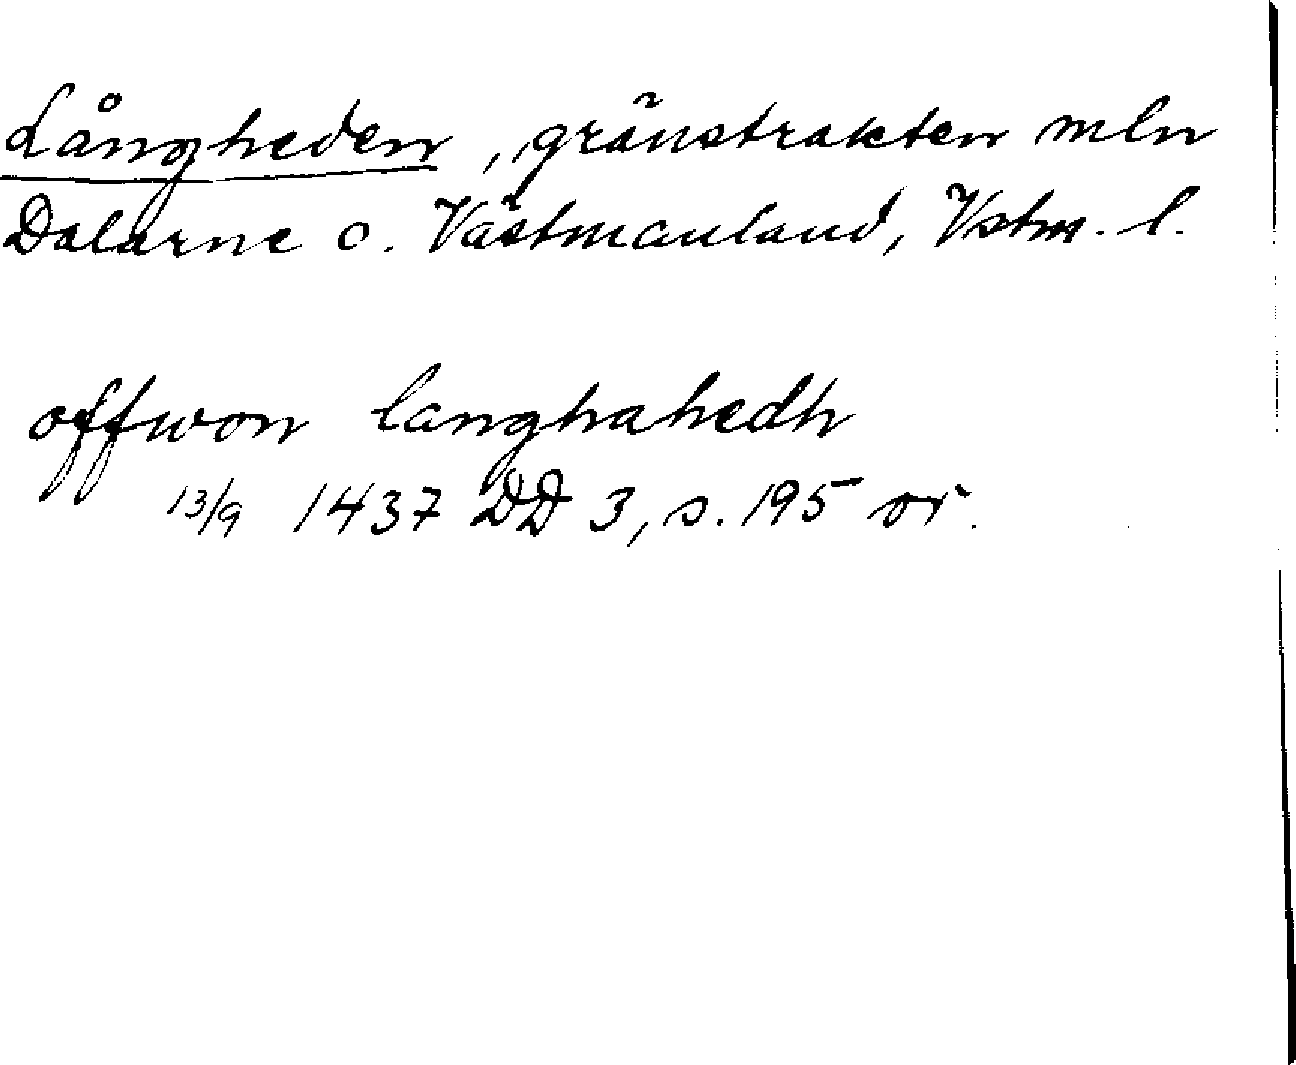 Långheden, gränstrakten mln
Dalarne o. Västmanland, Vstm. l.
offwon langhahedh
13/9 1437 DD 3, s. 195 or.